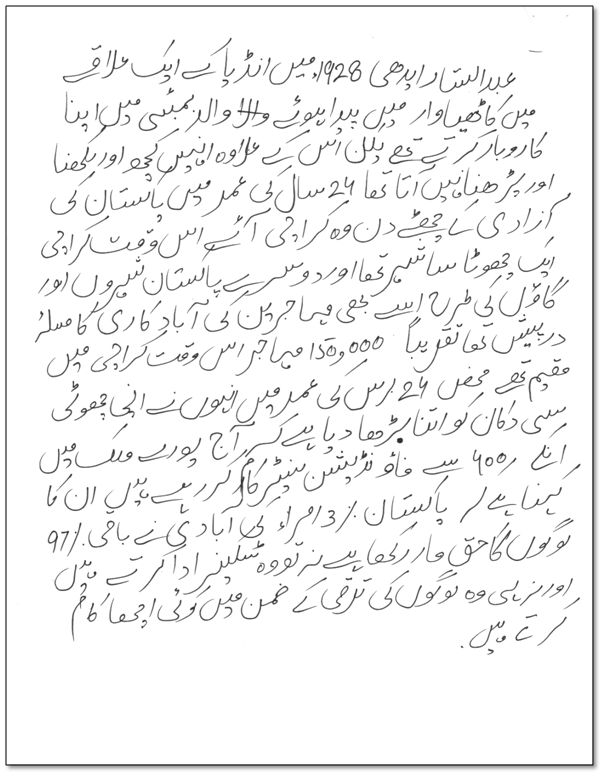 عبدالستار ایدھی 1928ء میں انڈیا کے ایک علاقے
میں کاٹھیاوار میں پیدا ہوئے والد بمبئی میں اپنا
کاروبار کرتے تھے لیکن اس کے علاوہ انہیں کچھ اور لکھنا
اور پڑھنا نہیں آتا تھا 26 سال کی عمر میں پاکستان کی
آزادی کے چھٹے دن وہ کراچی آئے اس وقت کراچی
ایک چھوٹا سا شہر تھا اور دوسرے پاکستان شہروں اور
گاؤں کی طرح اسے بھی مہاجرین کی آباد کاری کا مسئلہ
درپیش تھا تقریباً 150,000 مہاجر اس وقت کراچی میں
مقیم تھے محض 26 برس کی عمر میں انہوں نے اپنی چھوٹی
سی دکان کو اتنا بڑھا دیا ہے کہ آج پورے ملک میں
انکے 400 سے فاؤنڈیشن سینٹر کام کر رہے ہیں ان کا
کہنا ہے / پاکستان %3 امراء کی آبادی نے باقی %97
لوگوں کا حق مار رکھا ہے نہ تو وہ ٹیکسیز ادا کرتے ہیں
اور نہ ہی وہ لوگوں کی ترقی کے ضمن میں کوئی اچھا کام
کرتے ہیں.